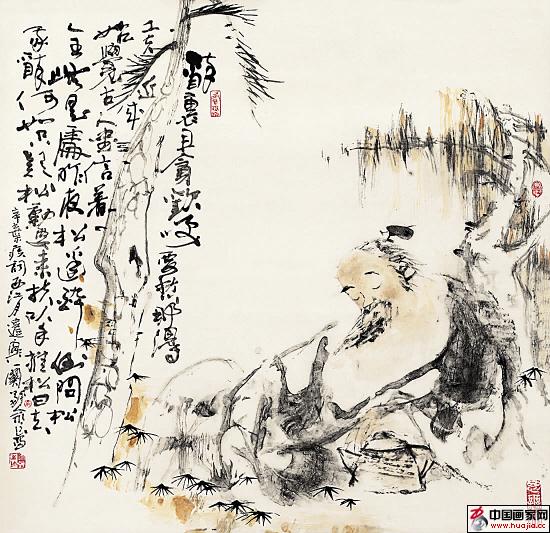 醉裏且貪歡笑要愁那得
工夫近来
始覺古人書信著
全無是處昨夜松邊醉倒問松
我醉何如只疑松動要来扶以手推松曰去
辛棄疾詞西江月遣興一闋
中国画家网
www.huajia.cc